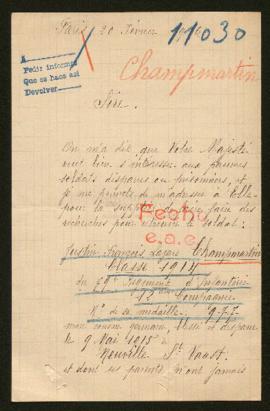 Paris 20 Février
11030
Pedir informes
Que se haos asi
Devolver
Champmartin
Sire,
On m'a dit que Votre Majesté
veut bien s'intéresser aux pauvres
soldats disparus ou prisonniers, et
je me permets de m'adresser à Elle
pour la supplier de faire faire des
recherches pour retrouver le soldat:
Fecho
e.a.c.
Champmartin
classe 1914
du Régiment d'Infanterie
Compagnie
No de sa médaille 977
mon cousin germain, blessé et disparu
le 9 Mai 1915 à
Neuville St Vaast
et dont ses parents n'ont jamais